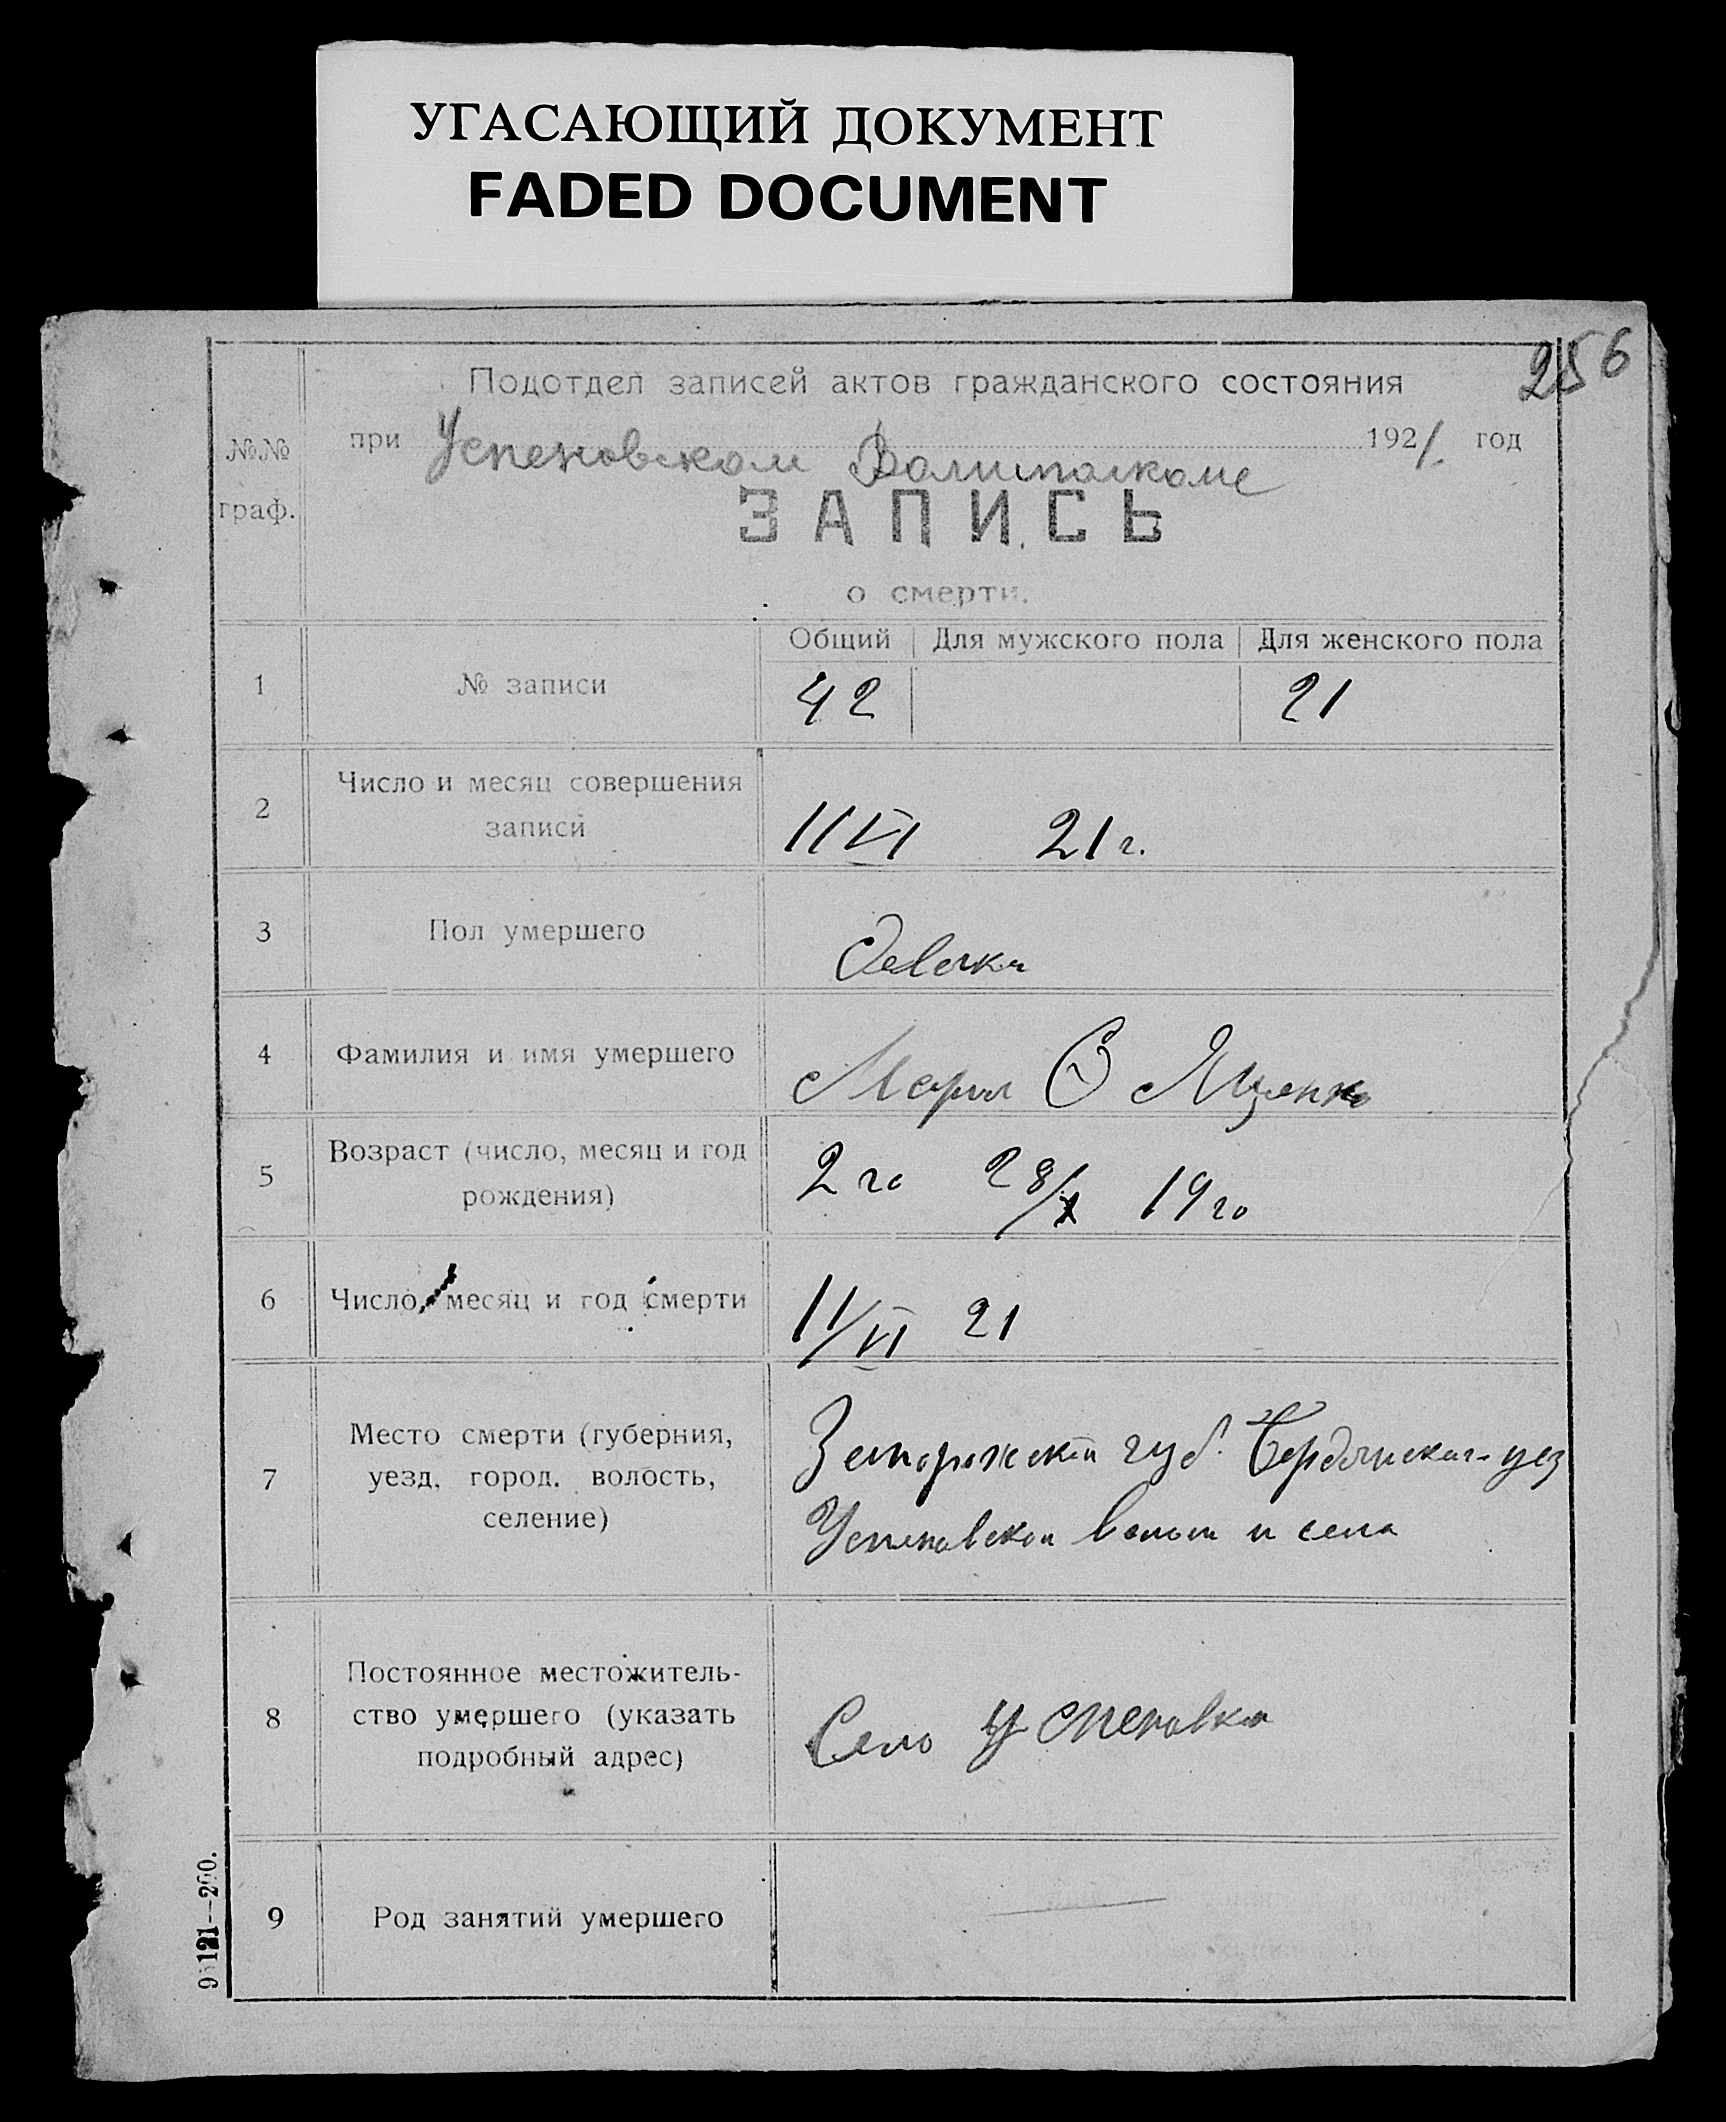 УГАСАЮЩИЙ ДОКУМЕНТ
FADED DOCUMENT
256
Подотдел записей актов гражданского состояния
№№ граф.
при Успеновском 1921 год
ЗАПИСЬ
о смерти.
Общий Для мужского пола Для женского пола
1 № записи 42 21
2 Число и месяц совершения
записи 11 VI 21 г.
3 Пол умершего Девочка
4 Фамилия и имя умершего Мария Яценко
5 Возраст (число, месяц и год
рождения) 2 го 28/X 19 го
6 Число, месяц и год смерти 11/VI 21
7 Место смерти (губерния, Запорожской губ. Бердянскаго уез
уезд, город, волость, Успеновской волости и села
селение)
8 Постоянное местожитель-
ство умершего (указать Село Успеновка
подробный адрес)
9 Род занятий умершего